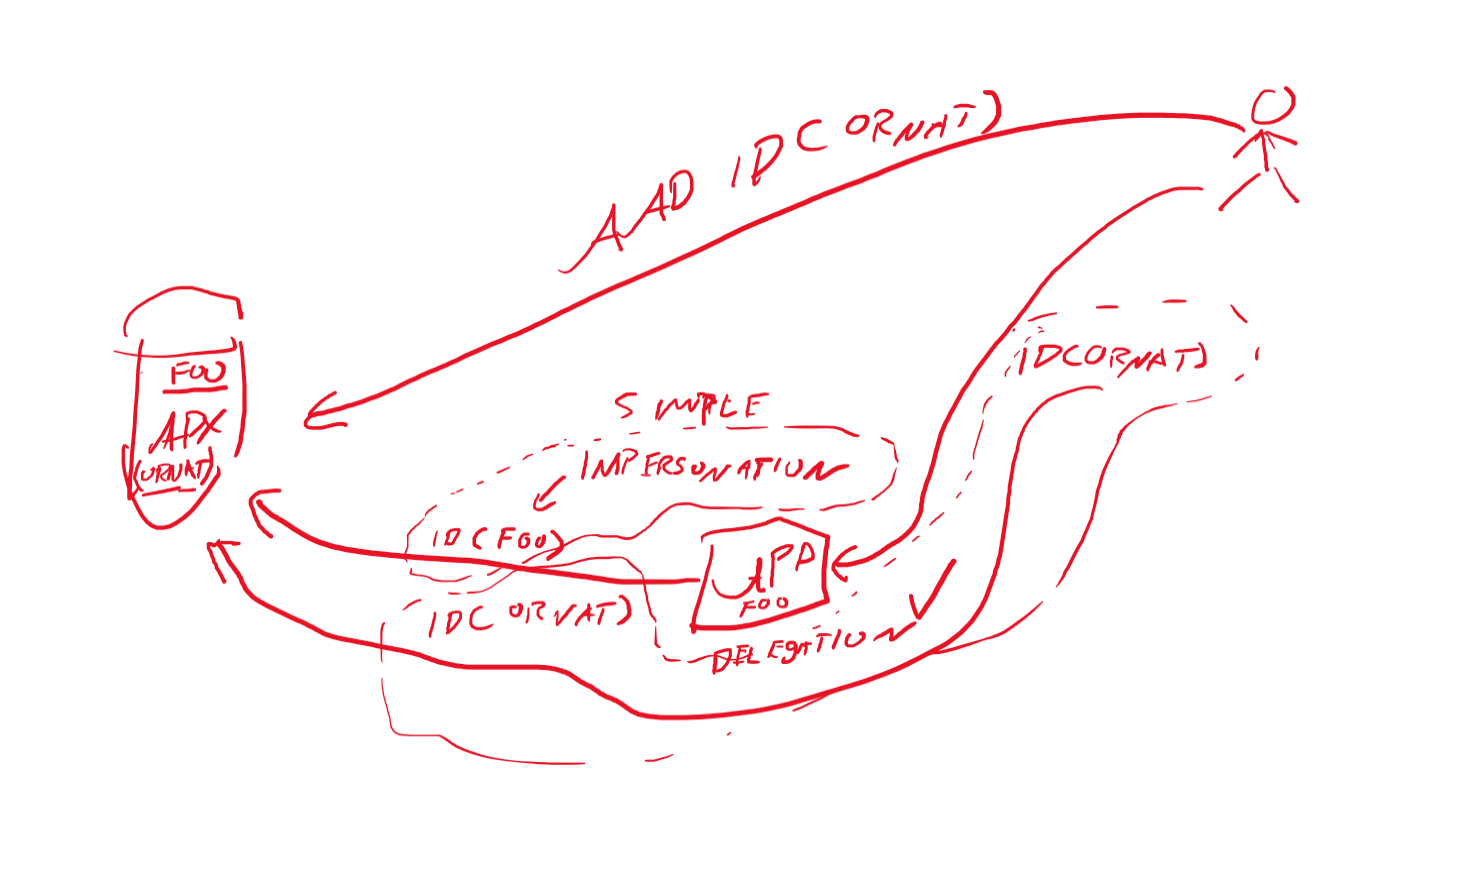 AAD ID(ORNAT)
ID(ORNAT)
FOO
ADX
(ORNAT)
SIMPLE
IMPERSONATION
ID(FOO)
APP
FOO
ID(ORNAT)
DELEGATION